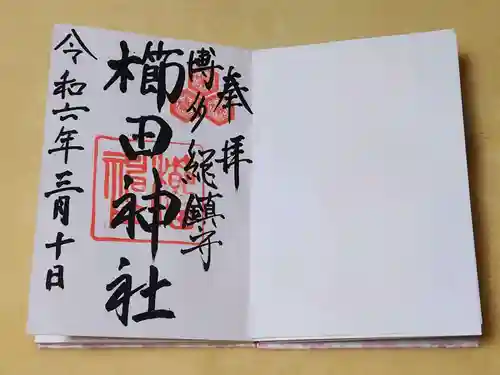 奉拝
博多総鎮守
櫛田神社
令和六年三月十日